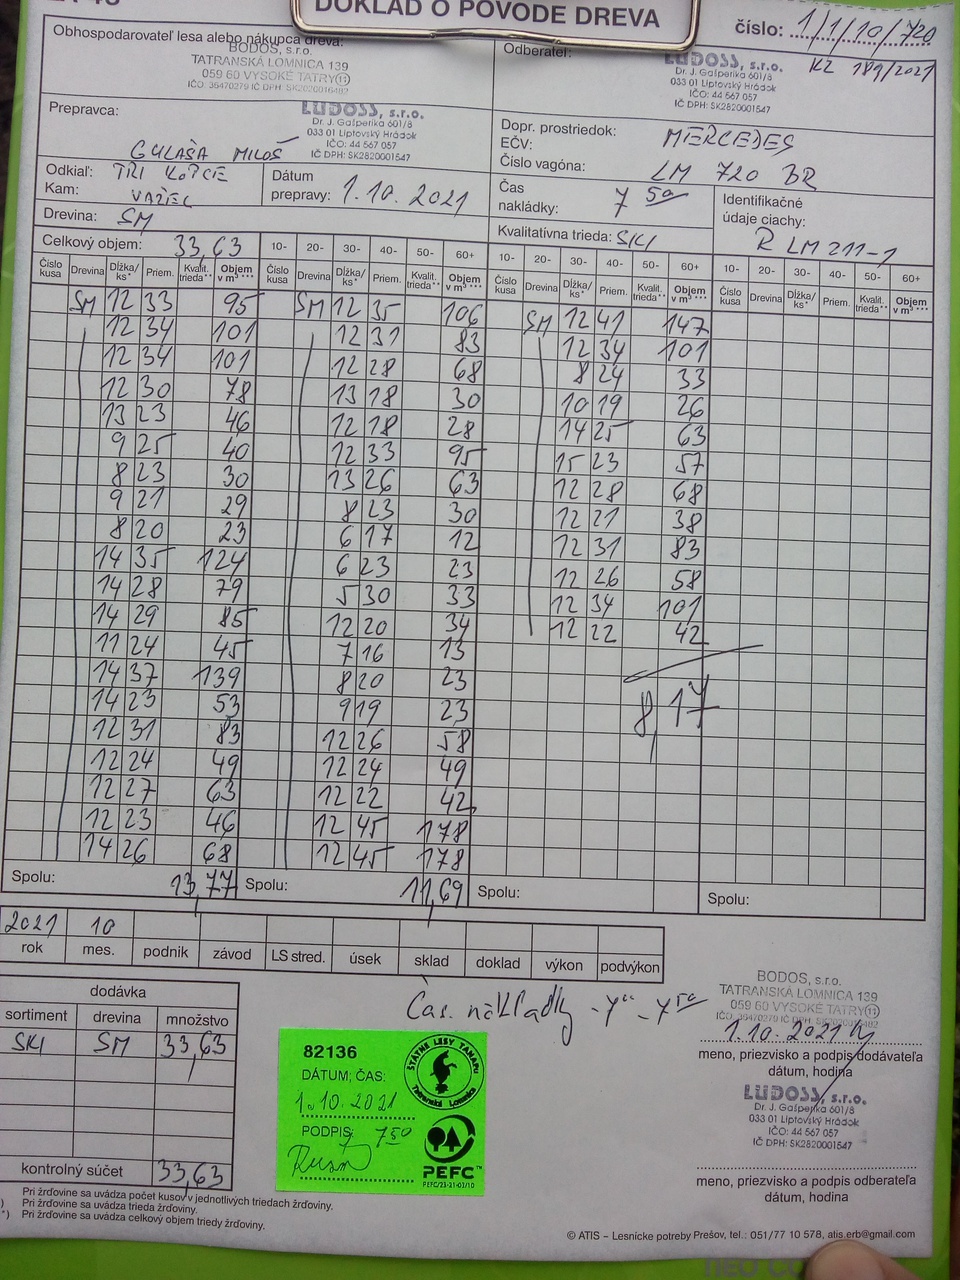 DOKLAD O PÔVODE DREVA
číslo: 1/1/10/720
KZ 189/2021
Obhospodarovateľ lesa alebo nákupca dreva:
BODOS, s.r.o.
TATRANSKÁ LOMNICA 139
059 60 VYSOKÉ TATRY
IČO: 36470279 IČ DPH: SK2020016482
Odberateľ:
LUDOSS, s.r.o.
Dr. J. Gašperíka 601/8
033 01 Liptovský Hrádok
IČO: 44 567 057
IČ DPH: SK2820001547
Prepravca:
LUDOSS, s.r.o.
Dr. J. Gašperíka 601/8
033 01 Liptovský Hrádok
IČO: 44 567 057
IČ DPH: SK2820001547
GULAŠA MILOŠ
Dopr. prostriedok: MERCEDES
EČV:
Číslo vagóna: LM 720 BR
Odkiaľ: TRI KOPCE
Kam: VAŽEC
Dátum prepravy: 1.10.2021
Čas nakládky: 7 50
Identifikačné údaje ciachy:
R LM 211-1
Drevina: SM
Kvalitatívna trieda: SKI
Celkový objem: 33,63
10- 20- 30- 40- 50- 60+ 10- 20- 30- 40- 50- 60+ 10- 20- 30- 40- 50- 60+
Číslo kusa Drevina Dĺžka/ks* Priem. Kvalit. trieda** Objem v m³ *** Číslo kusa Drevina Dĺžka/ks* Priem. Kvalit. trieda** Objem v m³ *** Číslo kusa Drevina Dĺžka/ks* Priem. Kvalit. trieda** Objem v m³ *** Číslo kusa Drevina Dĺžka/ks* Priem. Kvalit. trieda** Objem v m³ ***
SM 12 33 95 SM 12 35 106 SM 12 41 147
12 34 101 12 31 83 12 34 101
12 34 101 12 28 68 8 24 33
12 30 78 13 18 30 10 19 26
13 23 46 12 18 28 14 25 63
9 25 40 12 33 95 15 23 57
8 23 30 13 26 63 12 28 68
9 21 29 8 23 30 12 21 38
8 20 23 6 17 12 12 31 83
14 35 124 6 23 23 12 26 58
14 28 79 5 30 33 12 34 101
14 29 85 12 20 34 12 22 42
11 24 45 7 16 13
14 37 139 8 20 23
14 23 53 9 19 23 8,17
12 31 83 12 26 58
12 24 49 12 24 49
12 27 63 12 22 42
12 23 46 12 45 178
14 26 68 12 45 178
Spolu: 13,77 Spolu: 11,69 Spolu: Spolu:
2021 10
rok mes. podnik závod LS stred. úsek sklad doklad výkon podvýkon
dodávka
sortiment drevina množstvo
SKI SM 33,63
kontrolný súčet 33,63
Čas. nákladky - 7 - 7 50
82136
DÁTUM; ČAS:
1.10.2021
PODPIS: 7 50
ŠTÁTNE LESY TANAPU
Tatranská Lomnica
PEFC™
PEFC/23-21-03/10
BODOS, s.r.o.
TATRANSKÁ LOMNICA 139
059 60 VYSOKÉ TATRY
1.10.2021
meno, priezvisko a podpis dodávateľa
dátum, hodina
LUDOSS, s.r.o.
Dr. J. Gašperíka 601/8
033 01 Liptovský Hrádok
IČO: 44 567 057
IČ DPH: SK2820001547
meno, priezvisko a podpis odberateľa
dátum, hodina
Pri žrďovine sa uvádza počet kusov v jednotlivých triedach žrďoviny.
) Pri žrďovine sa uvádza trieda žrďoviny.
*) Pri žrďovine sa uvádza celkový objem triedy žrďoviny.
© ATIS – Lesnícke potreby Prešov, tel.: 051/77 10 578, atis.erb@gmail.com